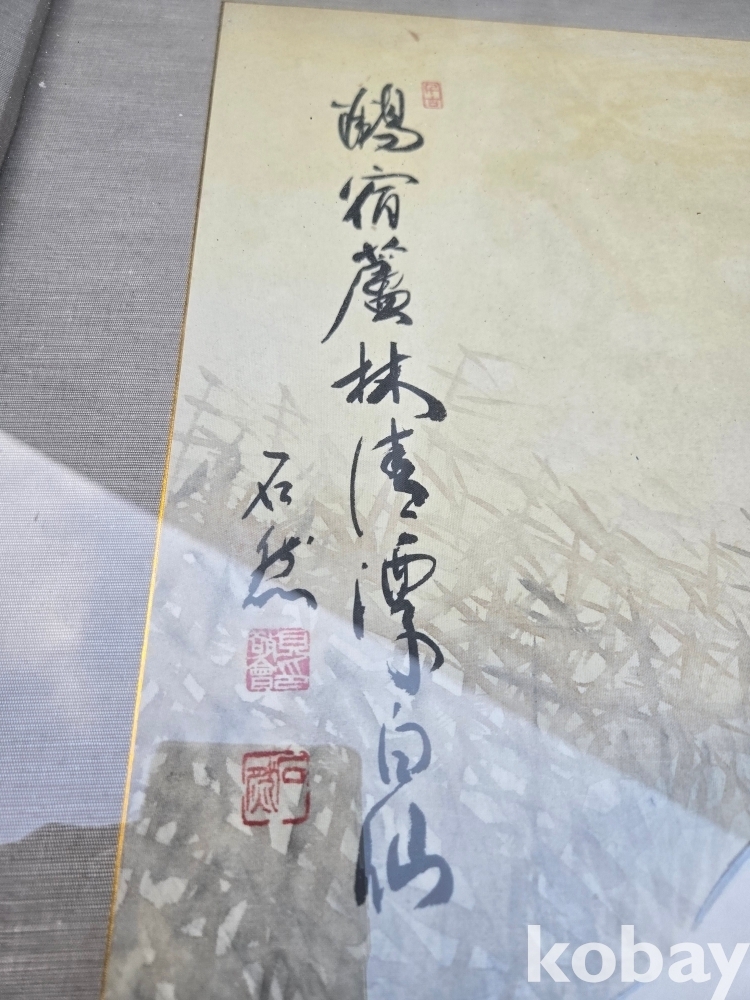 宿蘆林清潭白仙
石然
石然
kobay